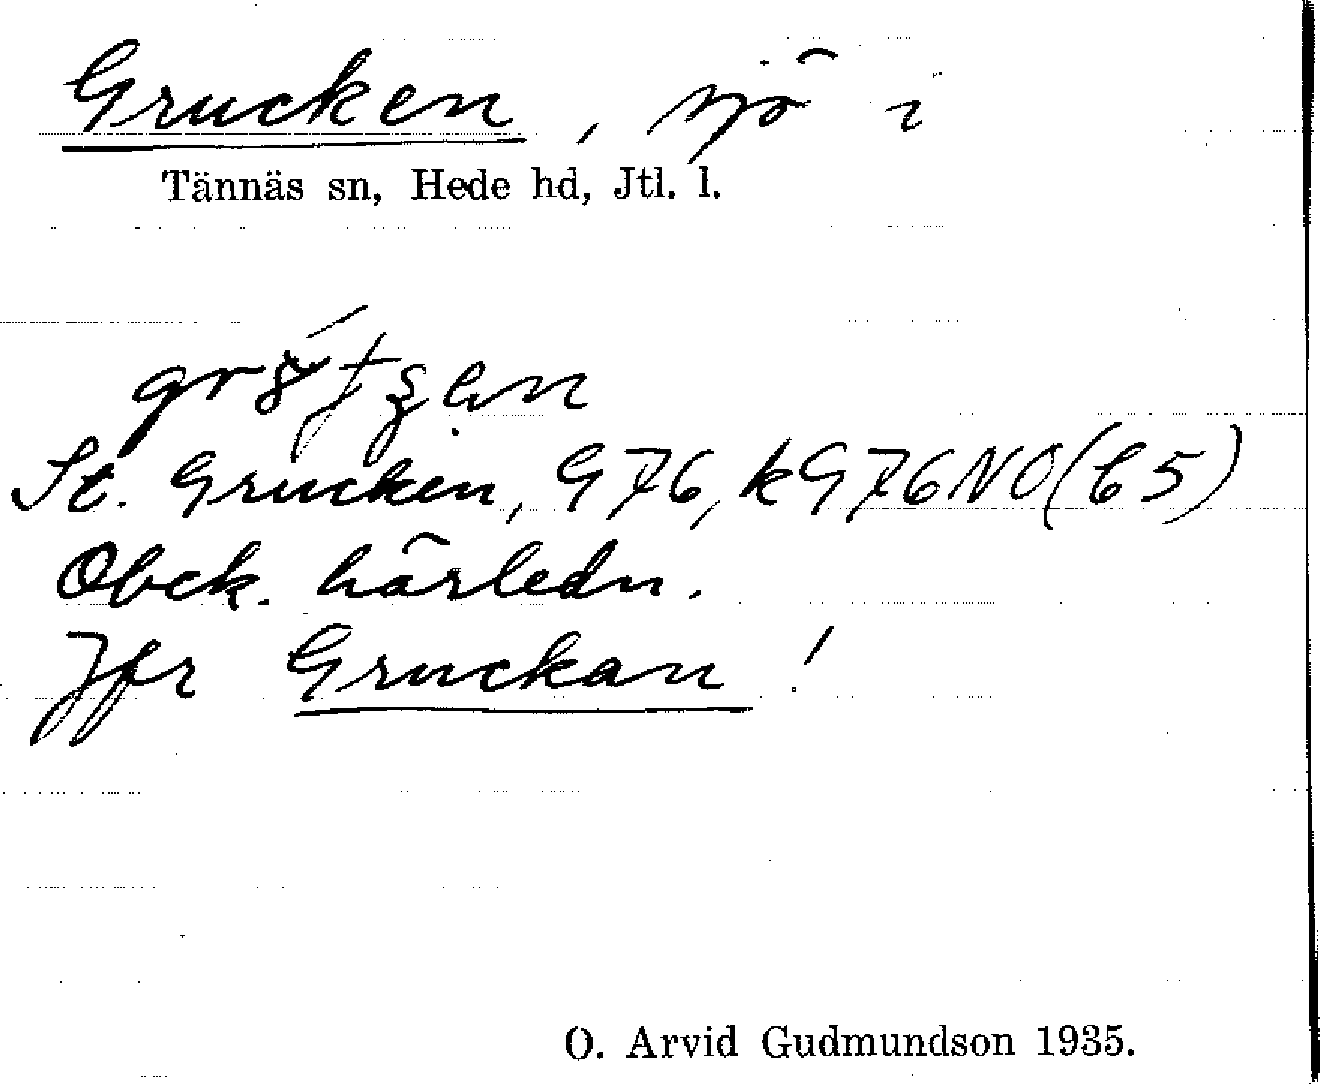 Grucken, sjö i
Tännäs sn, Hede hd, Jtl. l.
St. Grucken, G76, kG76NO(C5)
Obek. härledn.
Jfr Gruckan!
O. Arvid Gudmundson 1935.